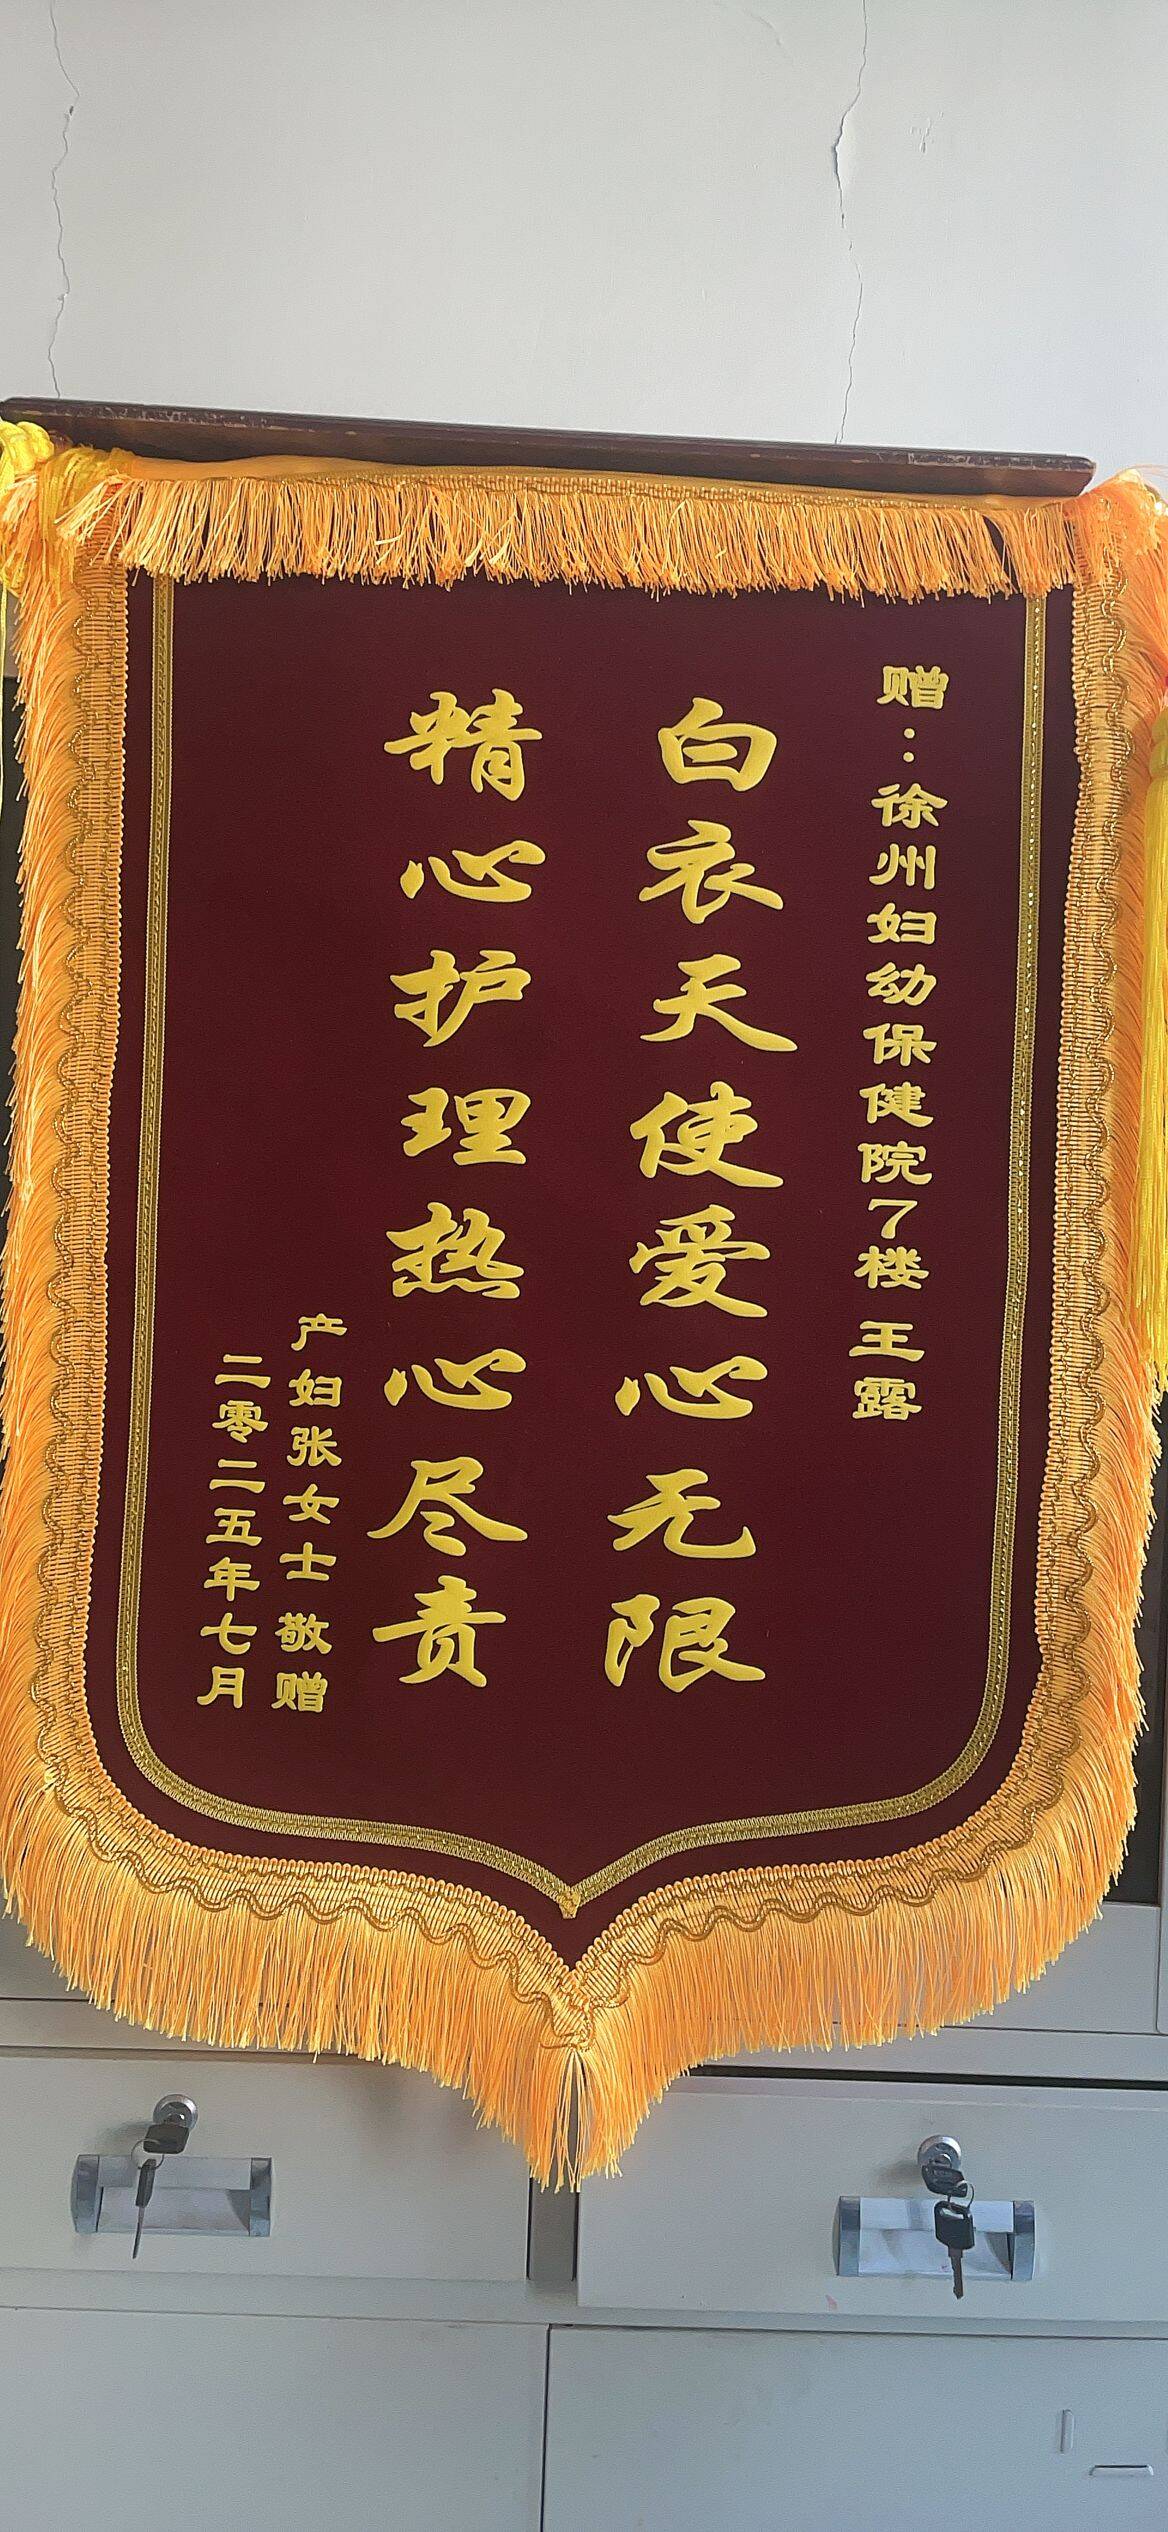 赠：徐州妇幼保健院7楼 王露
白衣天使爱心无限
精心护理热心尽责
产妇张女士 敬赠
二零二五年七月